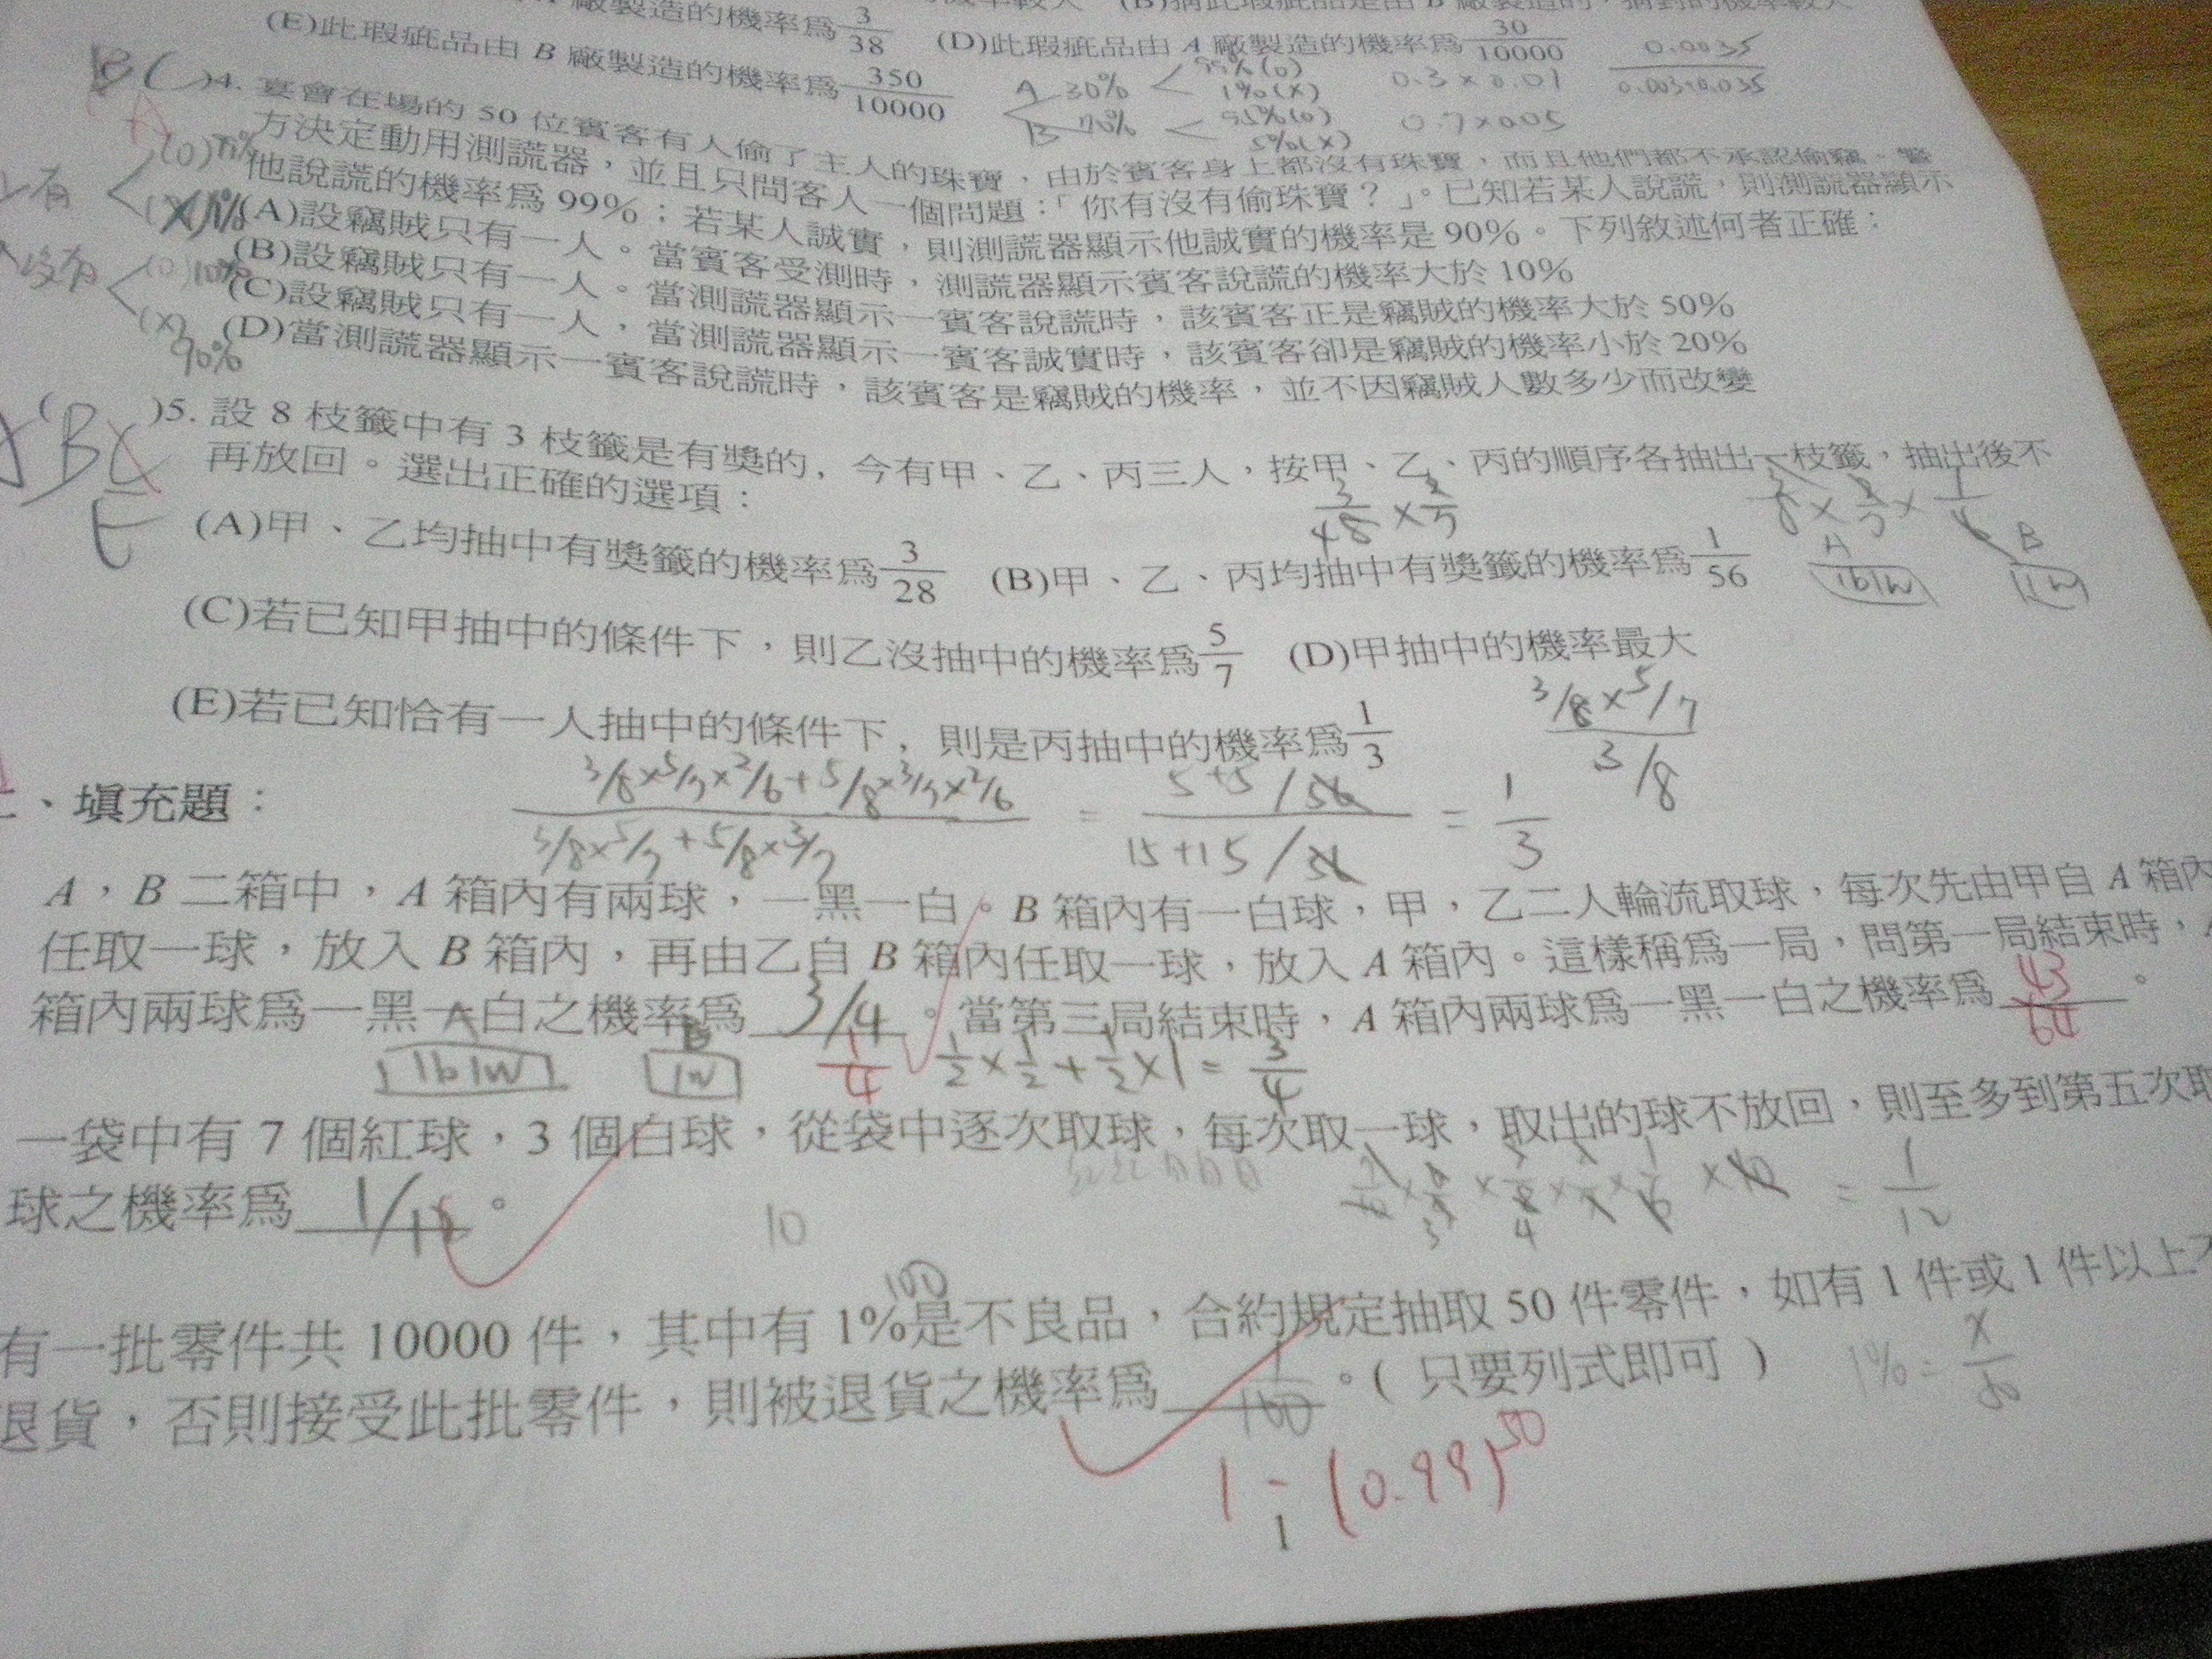 廠製造的機率為3/38 (D)此瑕疵品由 A 廠製造的機率為30/10000
(E)此瑕疵品由 B 廠製造的機率為350/10000
0.0035
A 30%
1%(X)
0.3×0.01
B 70%
5%(X)
0.7×0.05
B ( )4. 宴會在場的 50 位賓客有人偷了主人的珠寶，由於賓客身上都沒有珠寶，而且他們都不承認偷竊。警
方決定動用測謊器，並且只問客人一個問題：「你有沒有偷珠寶？」。已知若某人說謊，則測謊器顯示
他說謊的機率為 99%；若某人誠實，則測謊器顯示他誠實的機率是 90%。下列敘述何者正確：
(A)設竊賊只有一人。當賓客受測時，測謊器顯示賓客說謊的機率大於 10%
(B)設竊賊只有一人。當測謊器顯示一賓客說謊時，該賓客正是竊賊的機率大於 50%
(C)設竊賊只有一人，當測謊器顯示一賓客誠實時，該賓客卻是竊賊的機率小於 20%
(D)當測謊器顯示一賓客說謊時，該賓客是竊賊的機率，並不因竊賊人數多少而改變
有
沒有
(X)
90%
( )5. 設 8 枝籤中有 3 枝籤是有獎的，今有甲、乙、丙三人，按甲、乙、丙的順序各抽出一枝籤，抽出後不
再放回。選出正確的選項：
B
E
(A)甲、乙均抽中有獎籤的機率為3/28 (B)甲、乙、丙均抽中有獎籤的機率為1/56
A B
1b1w 1w
(C)若已知甲抽中的條件下，則乙沒抽中的機率為5/7 (D)甲抽中的機率最大
3/8×5/7
3/8
(E)若已知恰有一人抽中的條件下，則是丙抽中的機率為1/3
、填充題：
3/8×5/7×2/6+5/8×3/7×2/6 = 5+5/56 = 1
3/8×5/7+5/8×3/7 15+15/56 3
A，B 二箱中，A 箱內有兩球，一黑一白。B 箱內有一白球，甲，乙二人輪流取球，每次先由甲自 A 箱內
任取一球，放入 B 箱內，再由乙自 B 箱內任取一球，放入 A 箱內。這樣稱為一局，問第一局結束時，A
箱內兩球為一黑一白之機率為 3/4 。當第三局結束時，A 箱內兩球為一黑一白之機率為 43/64 。
A B
1b1w 1w 1/4 1/2×1/2+1/2×1=3/4
一袋中有 7 個紅球，3 個白球，從袋中逐次取球，每次取一球，取出的球不放回，則至多到第五次取
球之機率為 1/12 。
紅紅白白白
= 1/12
10
100
有一批零件共 10000 件，其中有 1%是不良品，合約規定抽取 50 件零件，如有 1 件或 1 件以上不
退貨，否則接受此批零件，則被退貨之機率為 1/100 。( 只要列式即可 )
1%=X/50
1-(0.99)50
1